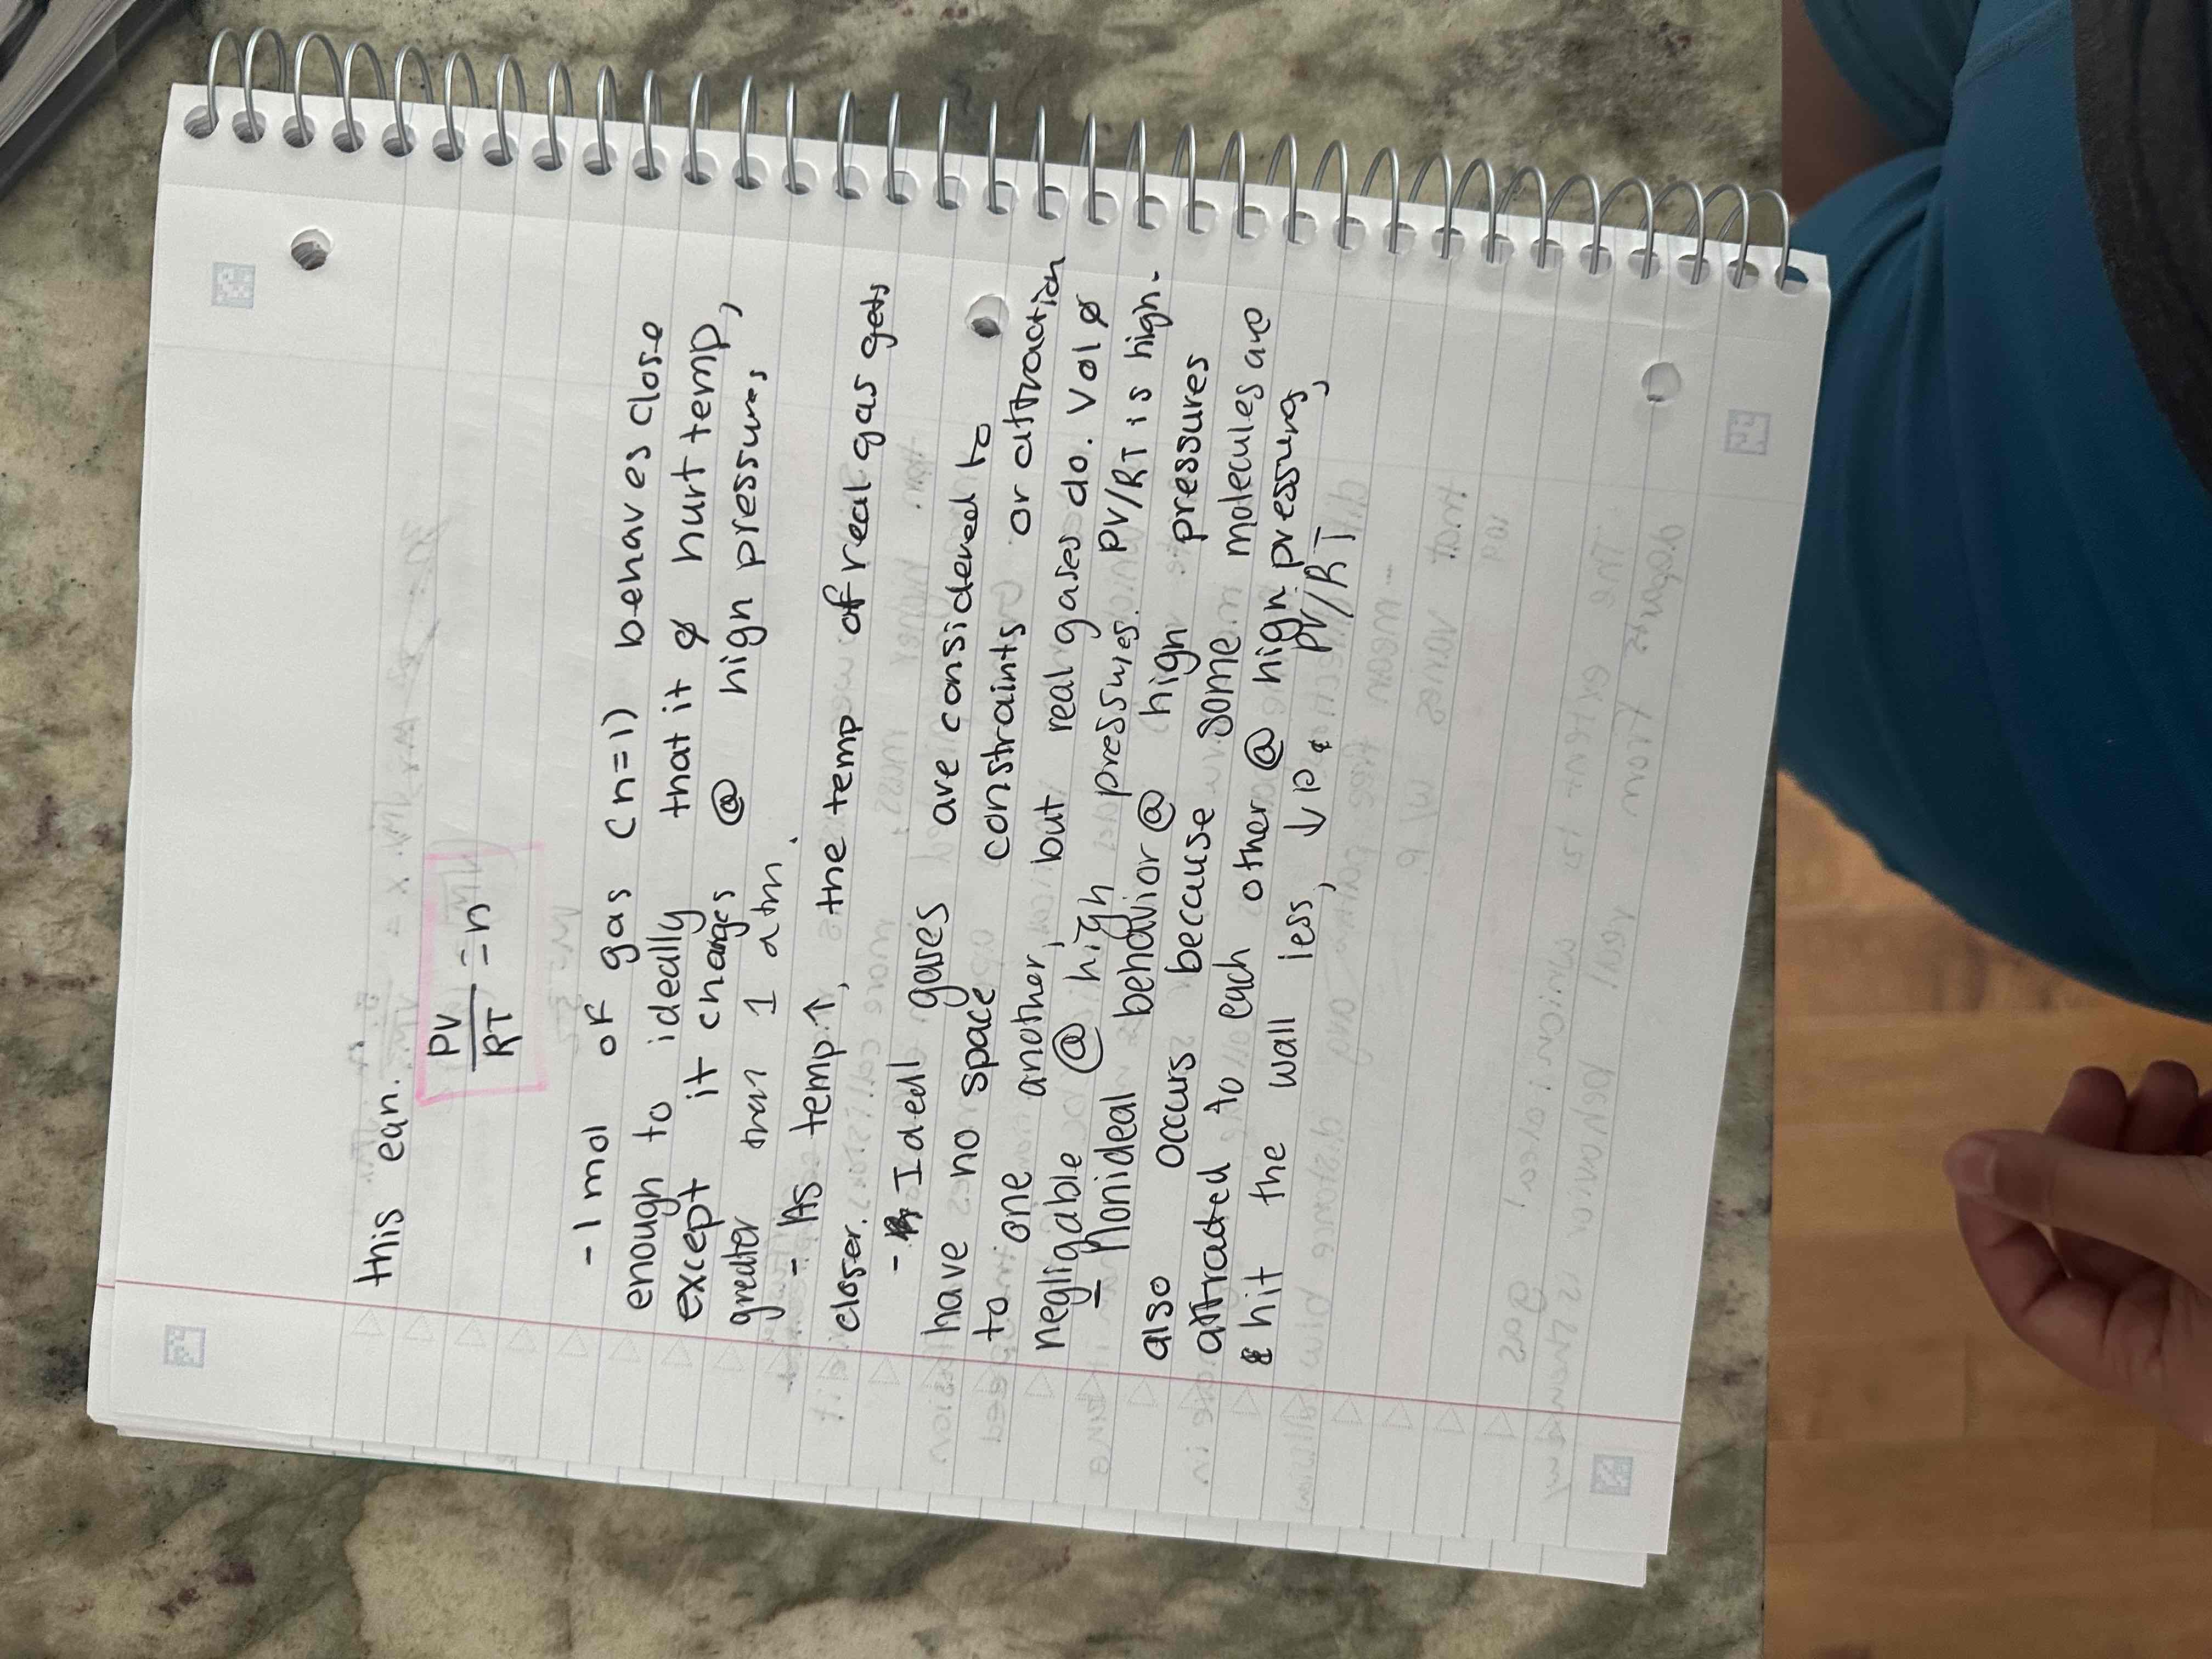 this eqn.
PV
RT
= n
- 1 mol of gas (n=1) behaves close
enough to ideally that it ø hurt temp,
except it changes @ high pressures
greater than 1 atm.
- As temp ↑, the temp of real gas gets
closer.
- Ideal gases are considered to
have no space constraints or attraction
to one another, but real gases do. Vol ø
negligable @ high pressures. PV/RT is high.
- Nonideal behavior @ high pressures
also occurs because some molecules are
attracted to each other @ high pressures,
& hit the wall less, ↓ P & PV/RT